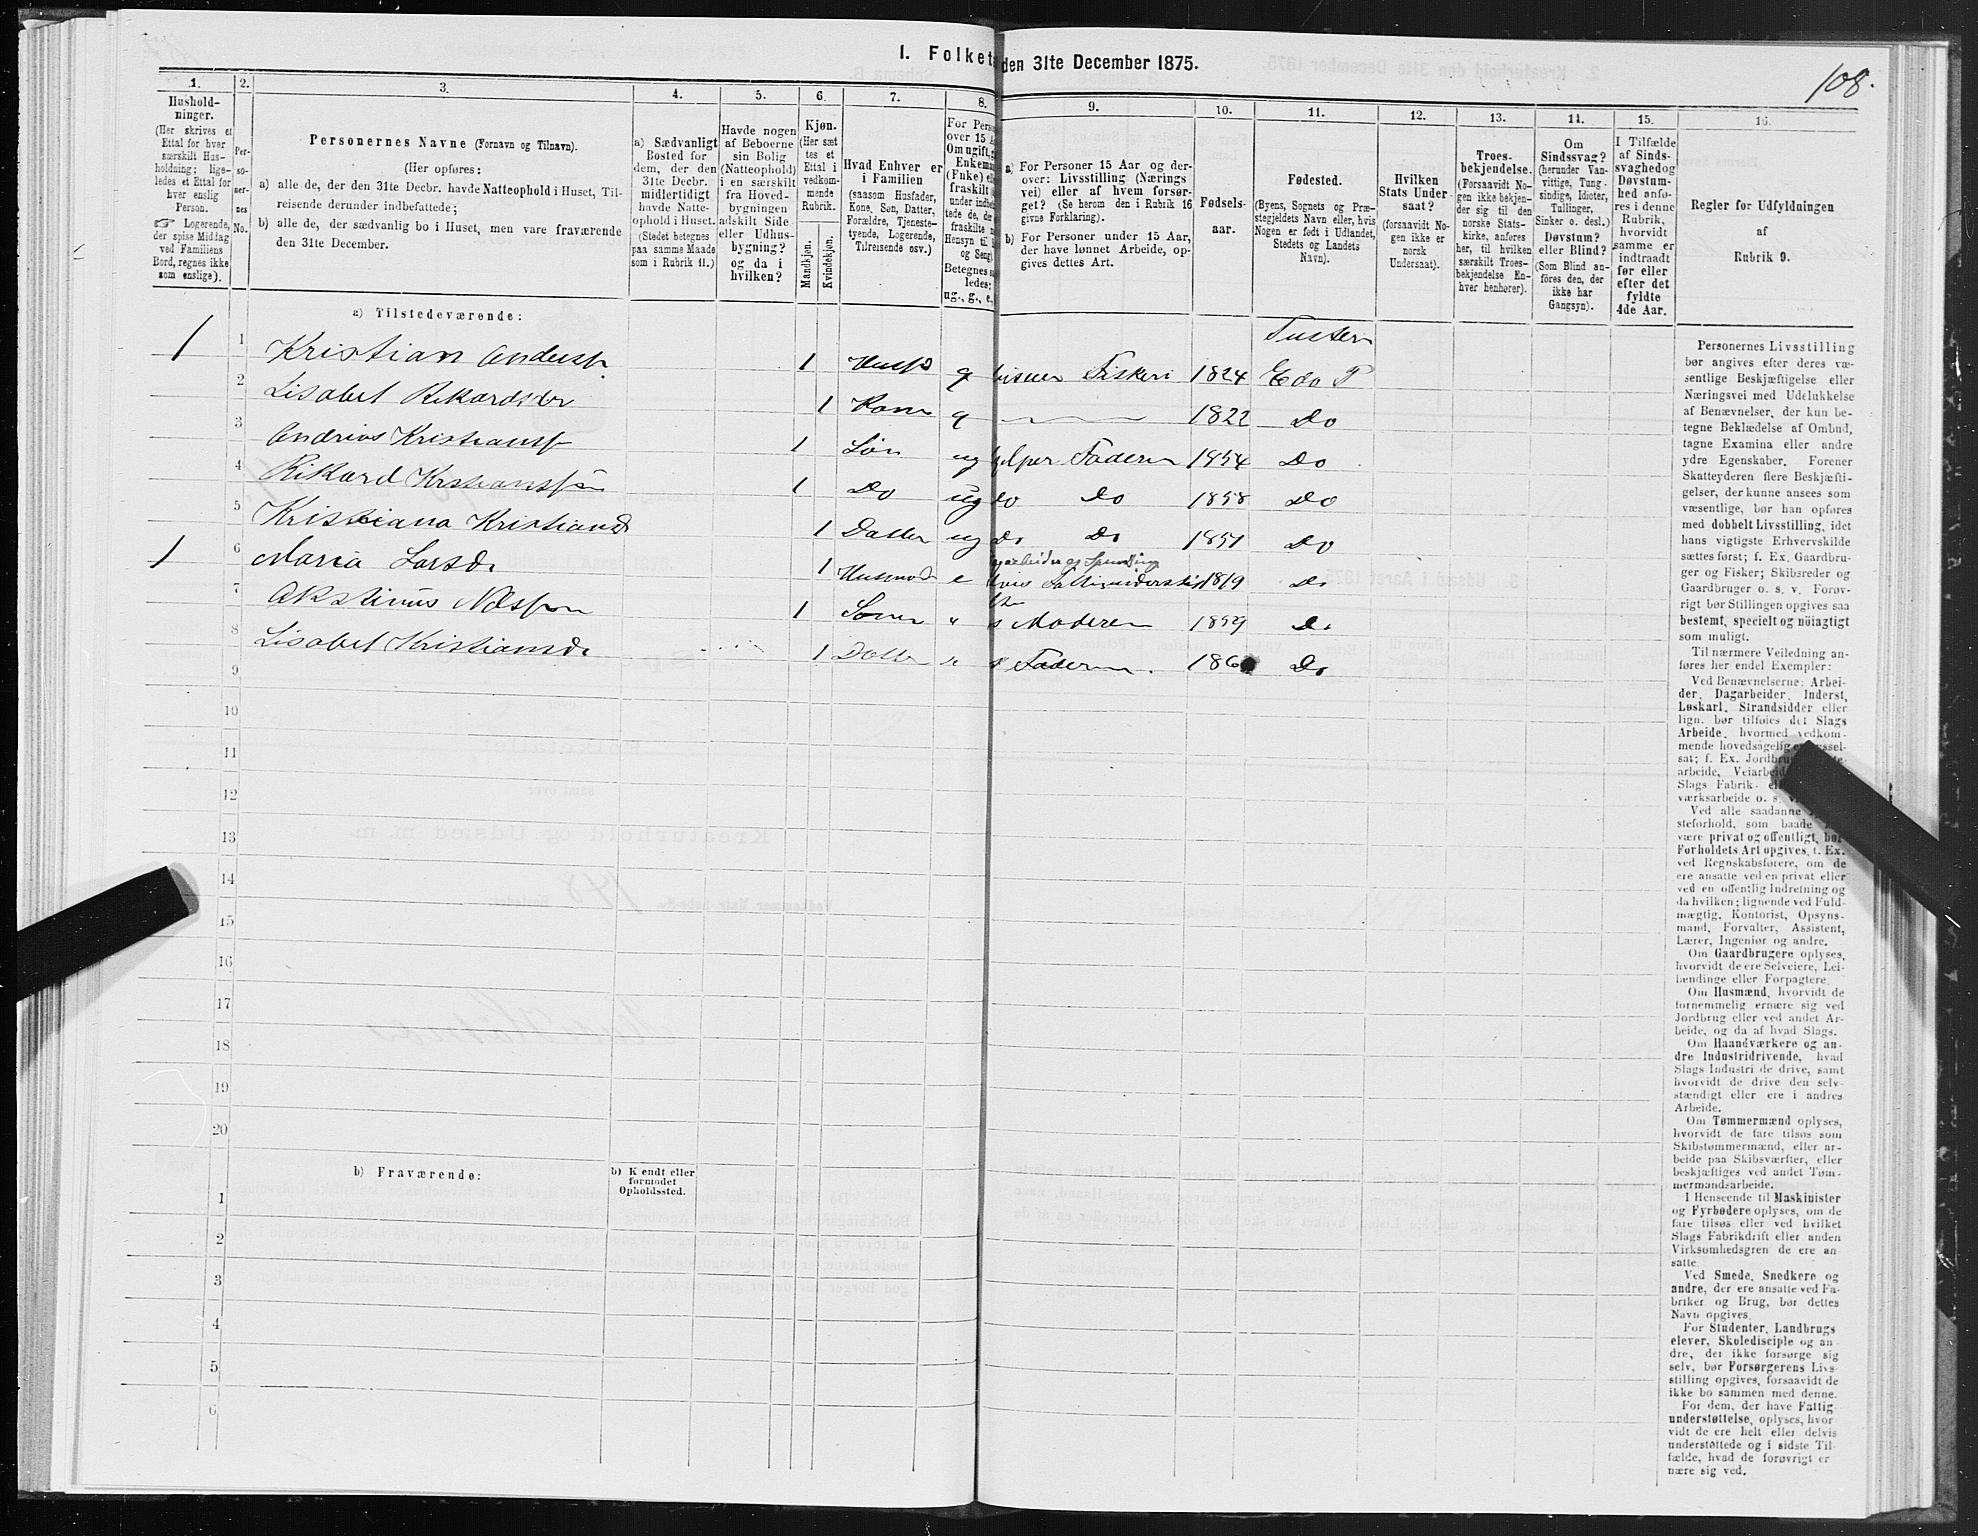 1. Folket den 31te December 1875.
108.
1. 2. 3. 4. 5. 6. 7. 8. 9. 10. 11. 12. 13. 14. 15. 16.
Hushold-
ninger.
(Her skrives et
Ettal for hver
særskilt Hus-
holdning; lige-
ledes et Ettal for
hver enslig
Person.
☞ Logerende,
der spise Middag
ved Familiens
Bord, regnes ikke
som enslige).
Per-
so-
ner-
nes
No.
Personernes Navne (Fornavn og Tilnavn).
(Her opføres:
a) alle de, der den 31te Decbr. havde Natteophold i Huset, Til-
reisende derunder indbefattede;
b) alle de, der sædvanlig bo i Huset, men vare fraværende
den 31te December.
a) Sædvanligt
Bosted for
dem, der den
31te Decbr.
midlertidigt
havde Natte-
ophold i Huset.
(Stedet betegnes
paa samme Maade
som i Rubrik 11.)
Havde nogen
af Beboerne
sin Bolig
(Natteophold)
i en særskilt
fra Hoved-
bygningen
adskilt Side-
eller Udhus-
bygning?
og da i
hvilken?
Kjøn.
(Her sæt
tes et
Ettal i
vedkom-
mende
Rubrik.
Mandkjøn.
Kvindekjøn.
Hvad Enhver er
i Familien
(saasom Husfader,
Kone, Søn, Datter,
Forældre, Tjeneste-
tyende, Logerende,
Tilreisende osv.)
For Perso
over 15 A
Om ugift, g
Enkema
(Enke) el
fraskilt
under indbe
tede de, de
fraskilte
Hensyn til
og Seng)
Betegnes s
ledes:
ug., g., e.,
a) For Personer 15 Aar og der-
over: Livsstilling (Nærings
vei) eller af hvem forsør-
get? (Se herom den i Rubrik 16
givne Forklaring).
b) For Personer under 15 Aar,
der have lønnet Arbeide, op-
gives dettes Art.
Fødsels-
aar.
Fødested.
(Byens, Sognets og Præ-
stegjeldets Navn eller, hvis
Nogen er født i Udlandet,
Stedets og Landets
Navn).
Hvilken
Stats Under-
saat?
(forsaavidt No-
gen ikke er
norsk
Undersaat).
Troes-
bekjendelse.
(Forsaavidt No-
gen ikke bekjen-
der sig til den
norske Stats-
kirke, anføres
her, til hvilken
særskilt Troes-
bekjendelse En-
hver henhører).
Om
Sindssvag?
(herunder Van-
vittige, Tung-
sindige, Idioter,
Tullinger,
Sinker o. desl.)
Døvstum?
eller Blind?
(Som Blind an-
føres den, der
ikke har
Gangsyn).
I Tilfælde
af Sinds-
svaghed og
Døvstum-
hed anfø-
res i denne
Rubrik,
hvorvidt
samme er
indtraadt
før eller
efter det
fyldte
4de Aar.
Regler for Udfyldningen
af
Rubrik 9.
a) Tilstedeværende:
Tustern
1 1 Kristian Anders 1 Husf g Fiskeri 1824 Edø P
2 Lisabet Rikardsdr 1 Kone g 1822 Do
3 Andrias Kristians 1 Søn ug Faderen 1854 Do
4 Rikard 1 Do ug do Do 1858 Do
5 Kristiana Kristiansd 1 Datter ug do Do 1851 Do
1 6 Maria Larsdr 1 Husmod e 1819 Do
7 1 Sønn " s Moderen 1859 Do
8 Lisabet Kristiansdr 1 Datter " s Faderen. 186 Do
9
10
11
12
13
14
15
16
17
18
19
20
b) Fraværende:
b) Kendt eller
formodet
Opholdssted.
1
2
3
4
5
6
Personernes Livsstilling
bør angives efter deres væ-
sentlige Beskjæftigelse eller
Næringsvei med Udelukkelse
af Benævnelser, der kun be-
tegne Beklædelse af Ombud,
tagne Examina eller andre
ydre Egenskaber. Forener
Skatteyderen flere Beskjæfti-
gelser, der kunne ansees som
væsentlige, bør han opføres
med dobbelt Livsstilling, idet
hans vigtigste Erhvervskilde
sættes først; f. Ex. Gaardbru-
ger og Fisker; Skibsreder og
Gaardbruger o. s. v. Forøv-
rigt bør Stillingen opgives saa
bestemt, specielt og nöiagtigt
som muligt.
Til nærmere Veiledning an-
føres her endel Exempler:
Ved Benævnelserne: Arbei-
der, Dagarbeider, Inderst,
Løskarl, Strandsidder eller
lign. bør tilføies det Slags
Arbeide, hvormed vedkom-
mende hovedsagelig er syssel-
sat; f. Ex. Jordbru
arbeide, Veiarbeid
Slags Fabrik- el
værksarbeide o. s.
Ved alle saadanne
steforhold, som baade
være privat og offentligt, bør
Forholdets Art opgives, f. Ex.
ved Regnskabsførere, om de
ere ansatte ved en privat eller
ved en offentlig Indretning og
da hvilken; lignende ved Fuld-
mægtig, Kontorist, Opsyns-
mand, Forvalter, Assistent,
Lærer, Ingeniør og andre.
Om Gaardbrugere oplyses,
hvorvidt de ere Selveiere, Lei-
lændinge eller Forpagtere.
Om Husmænd, hvorvidt de
fornemmelig ernære sig ved
Jordbrug eller ved andet Ar-
beide, og da af hvad Slags.
Om Haandværkere og an-
dre Industridrivende, hvad
Slags Industri de drive, samt
hvorvidt de drive den selv-
stændigt eller ere i andres
Arbeide.
Om Tømmermænd oplyses,
hvorvidt de fare tilsøs som
Skibstømmermænd, eller ar-
beide paa Skibsværfter, eller
beskjæftiges ved andet Tøm-
mermandsarbeide.
I Henseende til Maskinister
og Fyrbødere oplyses, om de
fare tilsøs eller ved hvilket
Slags Fabrikdrift eller anden
Virksomhedsgren de ere an-
satte.
Ved Smede, Snedkere og
andre, der ere ansatte ved Fa-
briker og Brug, bør dettes
Navn opgives.
For Studenter, Landbrugs
elever, Skoledisciple og an-
dre, der ikke forsørge sig
selv, bør Forsørgerens Livs-
stilling opgives, forsaavidt de
ikke bo sammen med denne.
For dem, der have Fattig-
understøttelse, oplyses, hvor-
vidt de ere helt eller delvis
understøttede og i sidste Til-
fælde, hvad de forøvrigt er
nære sig ved.